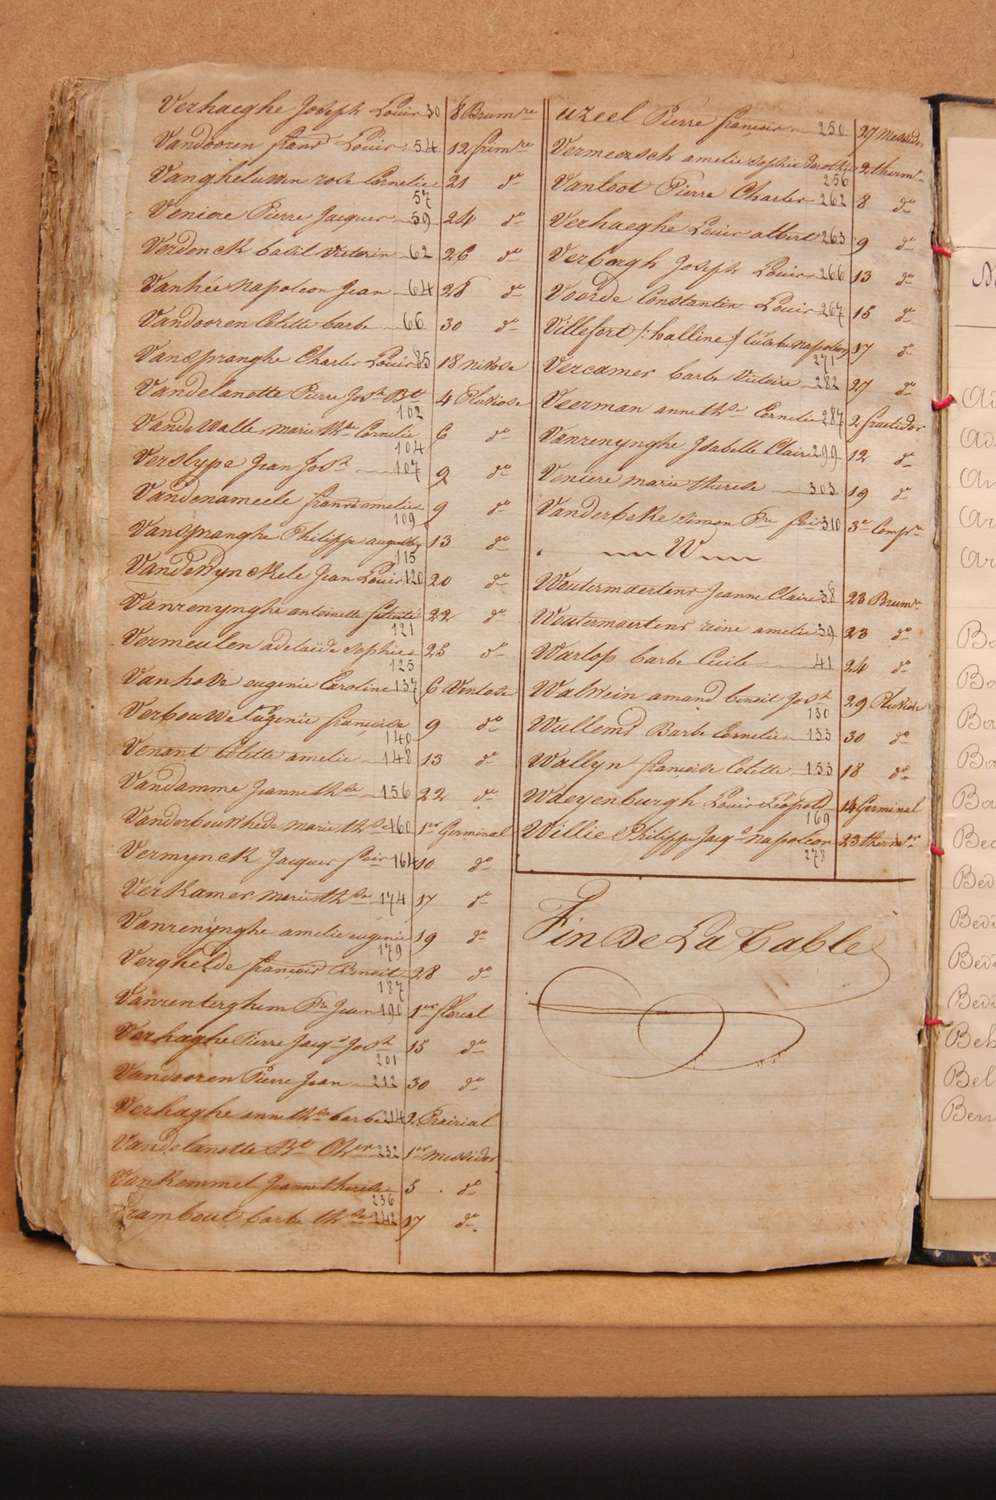 Verhaeghe Joseph Louis 30 8 Brumre
Vandooren frans Louis 54 12 frimre
Vangheluwen rose Cornelie 21 do
57
Veniere Pierre Jacques 59 24 do
Verdonck basil Victorin 62 26 do
Vanhée Napoleon Jean 64 28 do
Vandooren Colette barbe 66 30 do
Vanspranghe Charles Louis 85 18 nivose
Vandelanotte Pierre Josh Bt 4 Pluviose
102
Vandewalle marie the Cornelie 6 do
104
Verslype Jean Josh 107 9 do
Vandenameele amelie 9 do
109
Vanspranghe Philippe auguste 13 do
115
Vandewynckele Jean Louis 120 20 do
Vanrenynghe antoinette 22 do
121
Vermeulen adelaïde sophie 25 do
125
Vanhove eugenie Caroline 137 6 Ventose
Verbouwe Eugenie françoise 9 do
140
Venant Colette amelie 148 13 do
Vandamme Jeanne the 156 22 do
Vanderbouwhede marie the 160 1er Germinal
Vermynck Jacques fois 164 10 do
Verkamer marie the 174 17 do
Vanrenynghe amelie eugenie 19 do
179
Verghelde françois Benoit 28 do
187
Vanrenterghem Pre Jean 190 1er floreal
Verhaghe Pierre Jacqs Josh 15 do
201
Vandooren Pierre Jean 212 30 do
Verhaghe anne the barbe 214 2 Prairial
Vandelanotte Bt 232 1er messidor
Vankemmel Jeanne therese 5 do
236
barbe the 242 17 do
uzeel Pierre françois 250 27 Messidor
Vermeersch amelie sophie dorothée 2 thermr
256
Vanloot Pierre Charles 262 8 do
Verhaeghe Louis albert 263 9 do
Verborgh Joseph Louis 266 13 do
Voorde Constantin Louis 267 15 do
Villefort /: halline :/ napoleon 17 do
271
Vercamer barbe Victoire 282 27 do
Veerman anne the Cornelie 287 2 fructidor
Vanrenynghe Isabelle Claire 299 12 do
Veniere marie therese 303 19 do
Vanderbeke simon Pre fois 310 3e Compre
W
Woutermaertens Jeanne Claire 38 23 Brumre
Woutermaertens reine amelie 39 23 do
Warlop barbe Cecile 41 24 do
Walwein amand benoit Josh 29 Pluviose
130
Wullems Barbe Cornelie 133 30 do
Wallyn françoise Colette 153 18 do
Waeyenburgh Louis Léopold 14 Germinal
169
Willie Philippe Jacqs napoléon 23 thermre
278
Fin De La Table